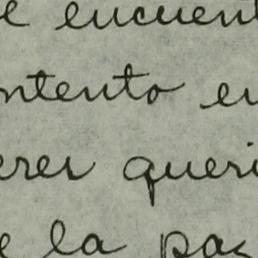 e encuent
ntento en
erer queri
e la paz